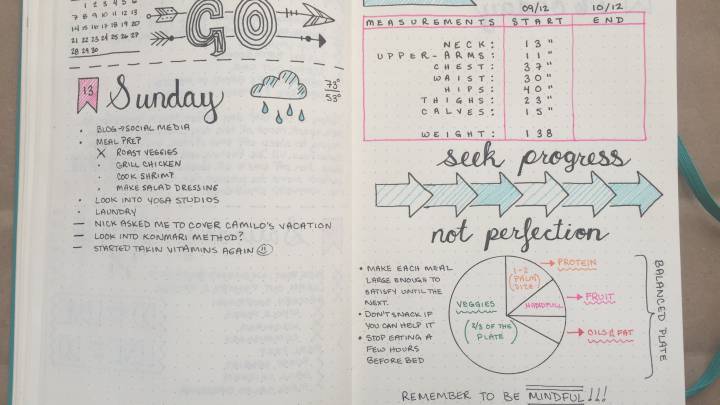 1 2 3 4 5 6
7 8 9 10 11 12 13
14 15 16 17 18 19 20
21 22 23 24 25 26 27
28 29 30
GO
13
Sunday
73°
53°
• BLOG → SOCIAL MEDIA
• MEAL PREP
X ROAST VEGGIES
• GRILL CHICKEN
• COOK SHRIMP
• MAKE SALAD DRESSING
• LOOK INTO YOGA STUDIOS
• LAUNDRY
— NICK ASKED ME TO COVER CAMILO'S VACATION
— LOOK INTO KONMARI METHOD?
— STARTED TAKIN VITAMINS AGAIN
09/12 10/12
MEASUREMENTS START END
NECK: 13"
UPPER-ARMS: 11"
CHEST: 37"
WAIST: 30"
HIPS: 40"
THIGHS: 23"
CALVES: 15"
WEIGHT: 138
seek progress
not perfection
• MAKE EACH MEAL
LARGE ENOUGH TO
SATISFY UNTIL THE
NEXT.
• DON'T SNACK IF
YOU CAN HELP IT
• STOP EATING A
FEW HOURS
BEFORE BED
VEGGIES
(2/3 OF THE
PLATE)
1-2
(PALM)
SIZE
HANDFULL
→ PROTEIN
→ FRUIT
→ OILS & FAT
BALANCED PLATE
REMEMBER TO BE MINDFUL!!!